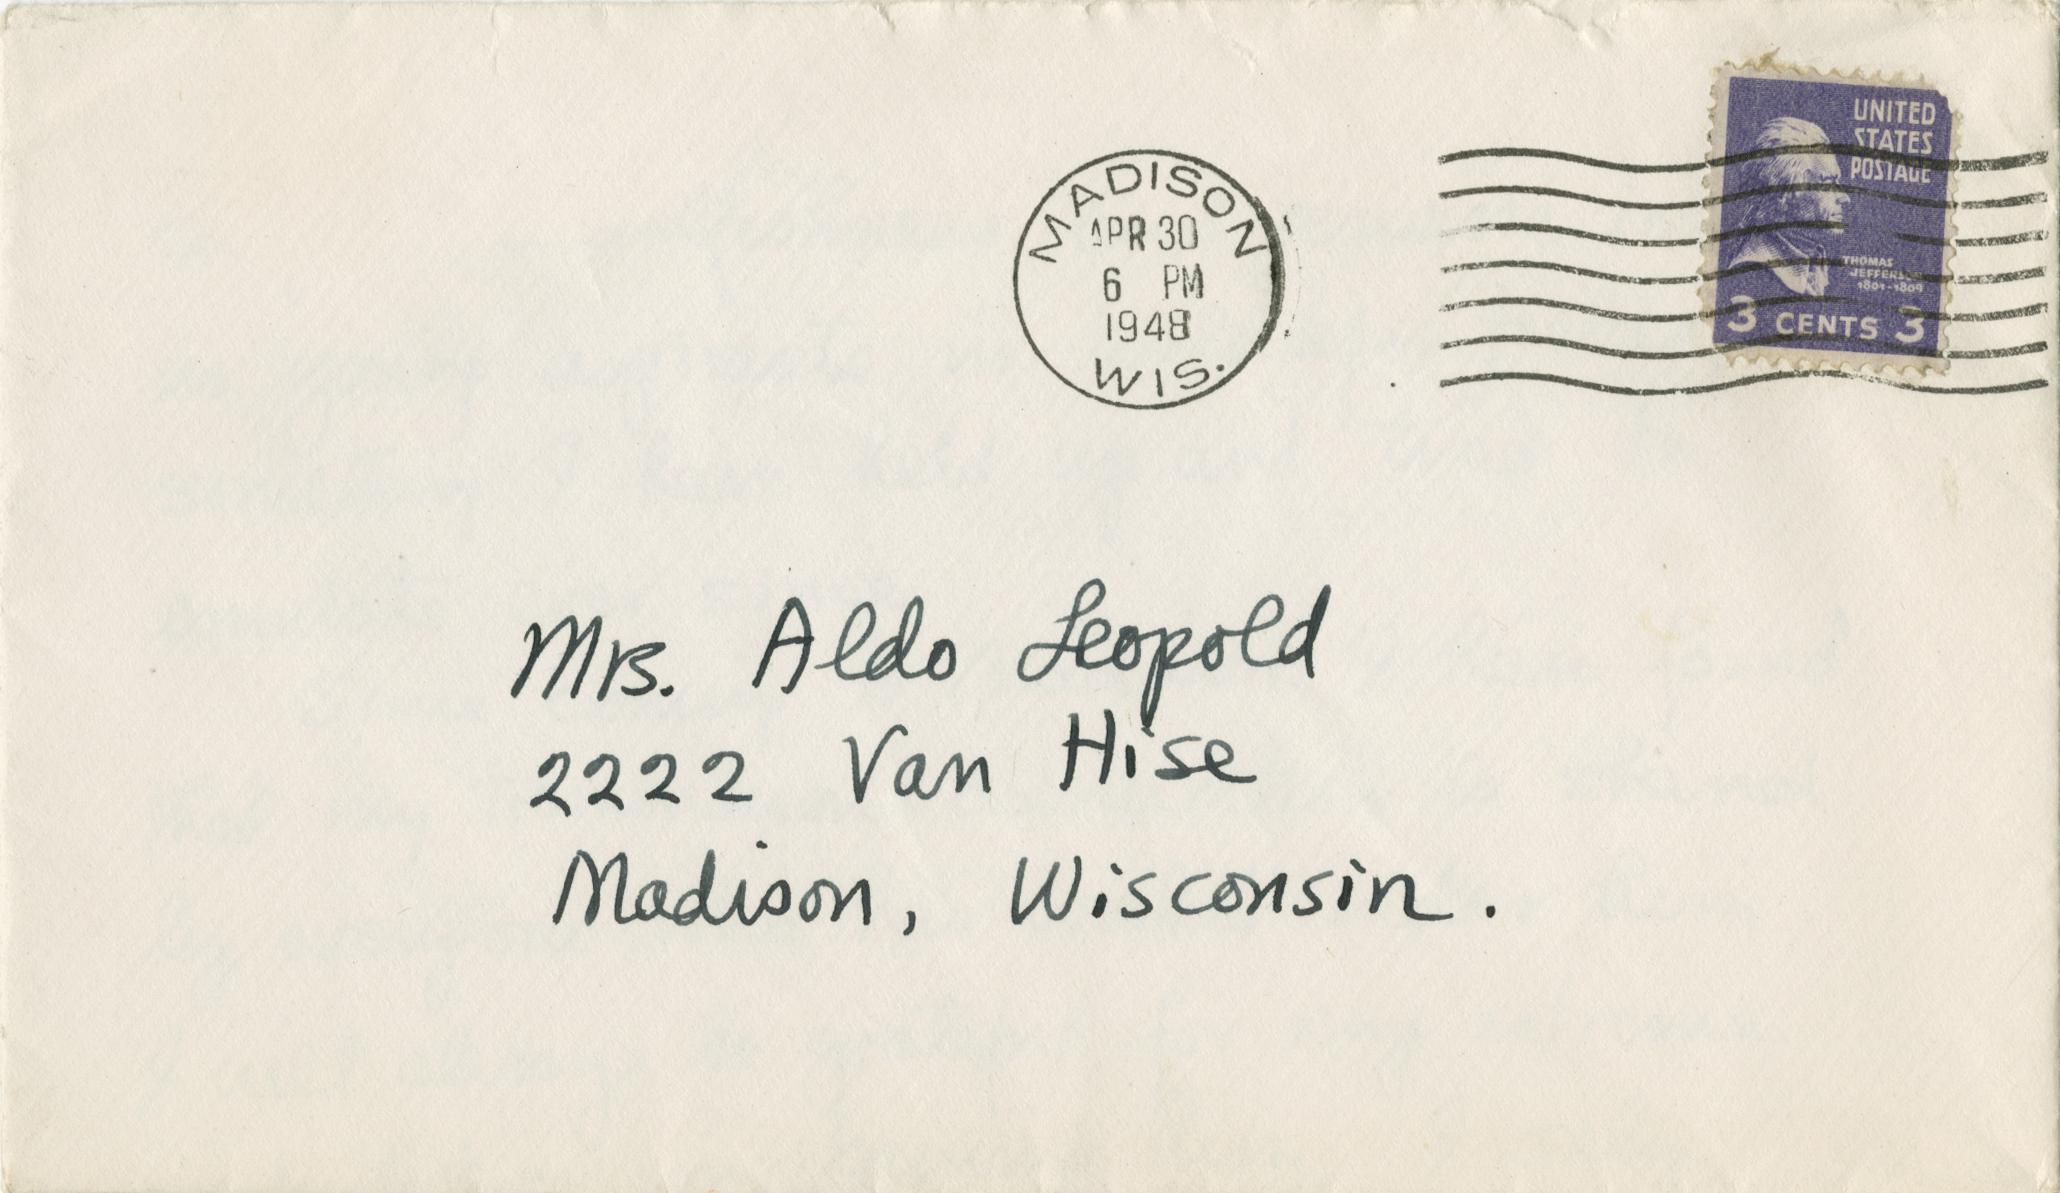 MADISON
APR 30
6 PM
1948
WIS.
UNITED
STATES
POSTAGE
THOMAS
JEFFERSON
1801-1809
3 CENTS 3
Mrs. Aldo Leopold
2222 Van Hise
Madison, Wisconsin.